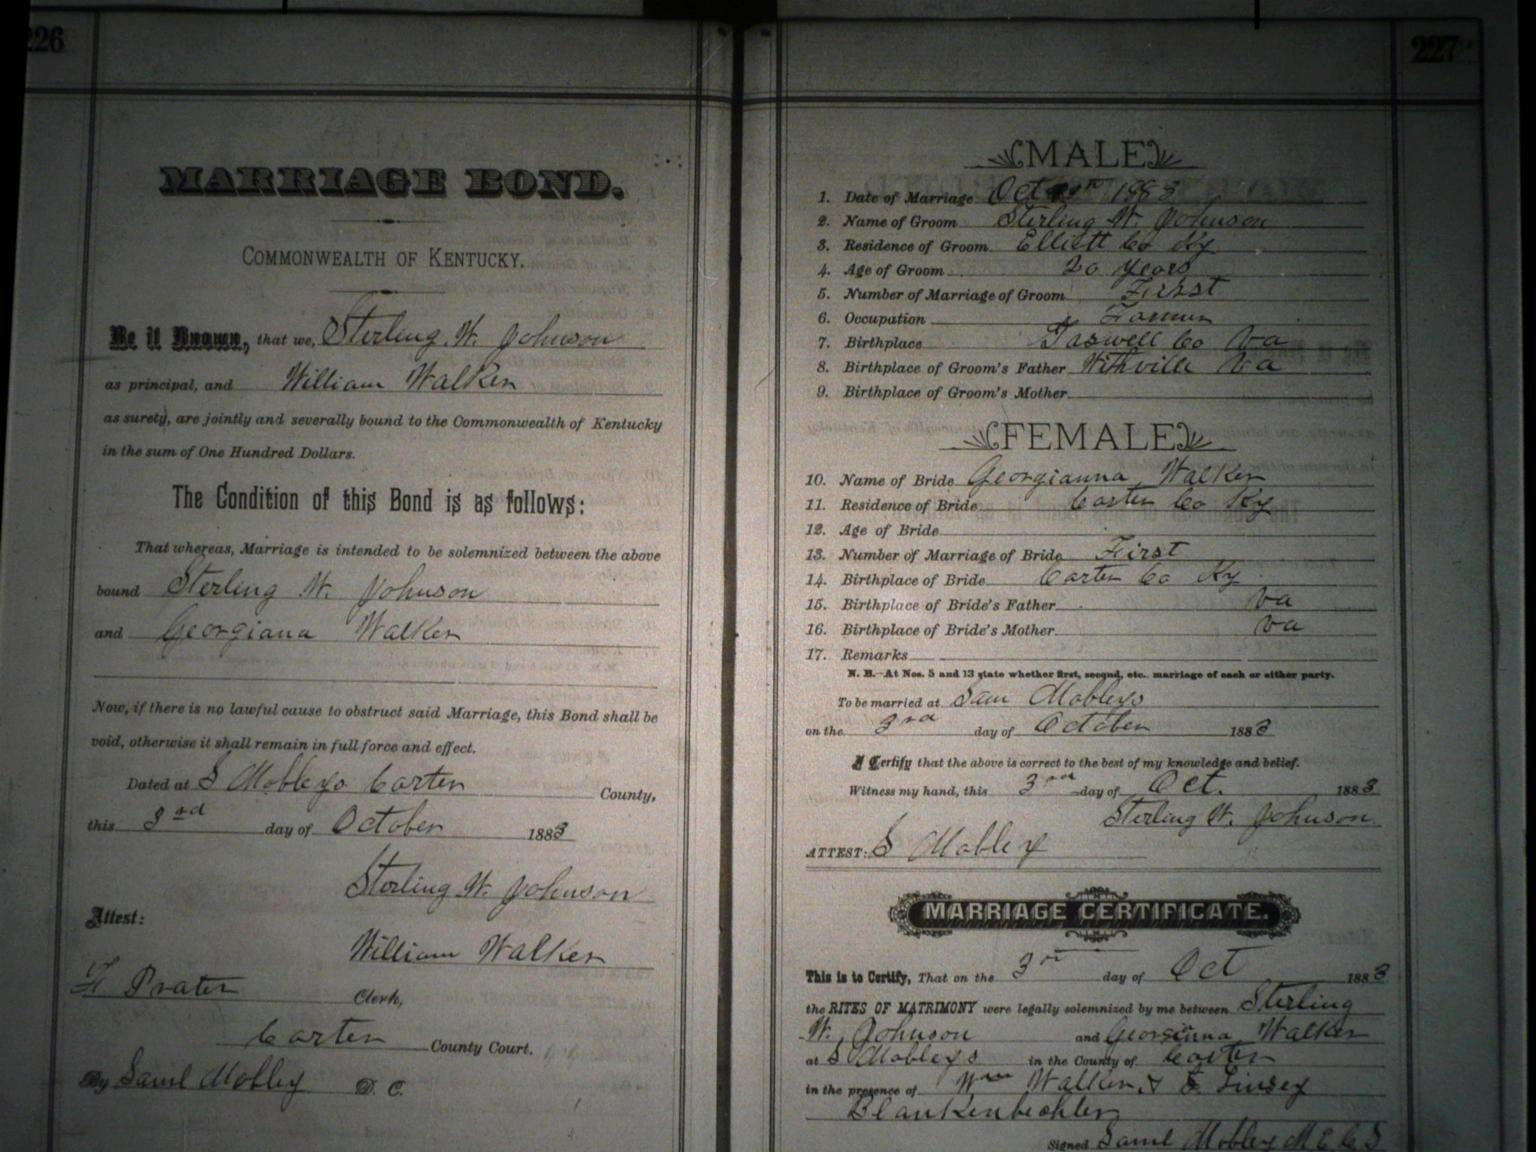 226
MARRIAGE BOND.
COMMONWEALTH OF KENTUCKY.
Be it Known, that we, Sterling W. Johnson
as principal, and William Walker
as surety, are jointly and severally bound to the Commonwealth of Kentucky
in the sum of One Hundred Dollars.
The Condition of this Bond is as follows:
That whereas, Marriage is intended to be solemnized between the above
bound Sterling W. Johnson
and Georgiana Walker
Now, if there is no lawful cause to obstruct said Marriage, this Bond shall be
void, otherwise it shall remain in full force and effect.
Dated at S Mobleys Carter County,
this 3rd day of October 1883
Sterling W. Johnson
Attest:
William Walker
Prater Clerk,
Carter County Court.
By Saml Mobley D. C.
227
MALE
1. Date of Marriage Oct 1883
2. Name of Groom Sterling W. Johnson
3. Residence of Groom Elliott Co Ky
4. Age of Groom 20 years
5. Number of Marriage of Groom First
6. Occupation Farmer
7. Birthplace Taswell Co Va
8. Birthplace of Groom's Father Withville Va
9. Birthplace of Groom's Mother
FEMALE
10. Name of Bride Georgianna Walker
11. Residence of Bride Carter Co Ky
12. Age of Bride
13. Number of Marriage of Bride First
14. Birthplace of Bride Carter Co Ky
15. Birthplace of Bride's Father Va
16. Birthplace of Bride's Mother Va
17. Remarks
N. B.—At Nos. 5 and 13 state whether first, second, etc. marriage of each or either party.
To be married at Sam Mobleys
on the 3rd day of October 1883
I Certify that the above is correct to the best of my knowledge and belief.
Witness my hand, this 3rd day of Oct. 1883
Sterling W. Johnson
ATTEST: S Mobley
MARRIAGE CERTIFICATE.
This is to Certify, That on the 3rd day of Oct 1883
the RITES OF MATRIMONY were legally solemnized by me between Sterling
W. Johnson and Georgianna Walker
at S Mobleys in the County of Carter
in the presence of Wm Walker & E. Linsey
Blankenbeckler
Signed Saml Mobley